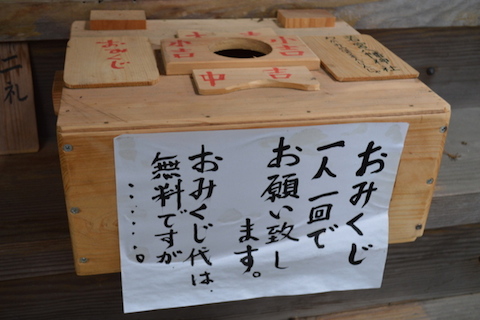 おみくじ
大吉
小吉
中吉
札
おみくじ
一人一回で
お願い致し
ます。
おみくじ代は、
無料ですが
・・・・・・。